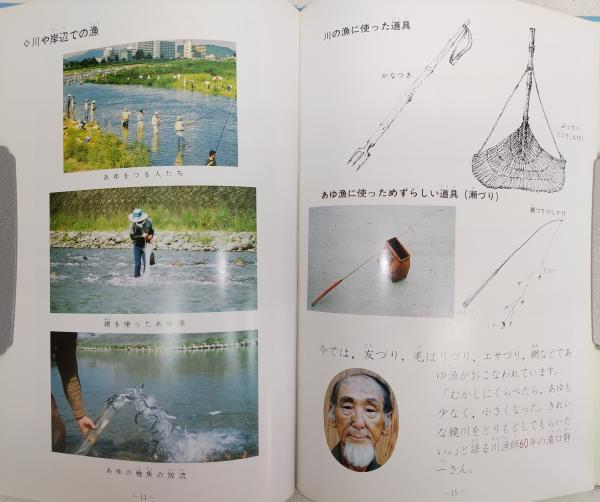 ◇川や岸辺での漁
あゆをつる人たち
網を使ったあゆ漁
あゆの稚魚の放流
－14－
川の漁に使った道具
かなつき
あゆ漁に使っためずらしい道具（瀬づり）
瀬づりのしかけ
今では，友づり，毛ばりづり，エサづり，網などであ
ゆ漁がおこなわれています。
「むかしにくらべたら，あゆも
少なく，小さくなった。きれい
な鏡川をとりもどしてもらいた
い。」と語る川漁師60年の滝口静
一さん。
－15－